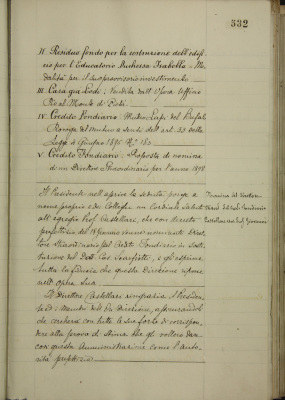 532
II. Residuo fondo per la costruzione dell'edifi-
cio per l'Educatorio Duchessa Isabella - Mo-
dalità per il suo provvisorio investimento
III. Casa qui Lodi; Vendita dell'
Rio al Monte di Pietà.
IV. Credito Fondiario: Mutuo Lapi del Bufalo
Proroga del Mutuo a sensi dell'art. 33 della
Legge 6 Giugno 1896 N.° 183.
V. Credito Fondiario: Proposta di nomina
di un Direttore Straordinario per l'anno 1897
Il Presidente nell'aprire la seduta porge a
nome proprio e dei Colleghi un cordiale saluto
all'egregio Prof. Castellari, che con decreto
prefettizio del 18 Gennaio venne nominato Diret-
tore Straordinario pel Credito Fondiario in sosti-
tuzione del Dott. Cav. e gli esprime
tutta la fiducia che questa Direzione ripone
nell'opera sua
Il Direttore Castellari ringrazia il Presiden-
te ed i Membri della Direzione, assicurandoli
che cercherà con tutte le sue forze di corrispon-
dere alla prova di stima che gli vollero dare
con questa Amministrazione come l'auto-
rità prefettizia
Nomina del Direttore